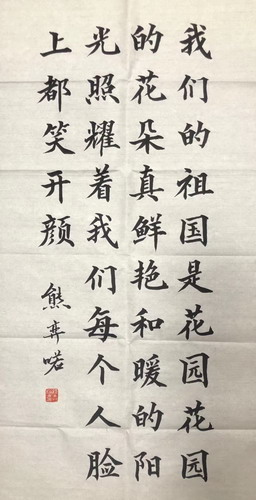 我们的祖国是花园花园
的花朵真鲜艳和暖的阳
光照耀着我们每个人脸
上都笑开颜
熊弈喏